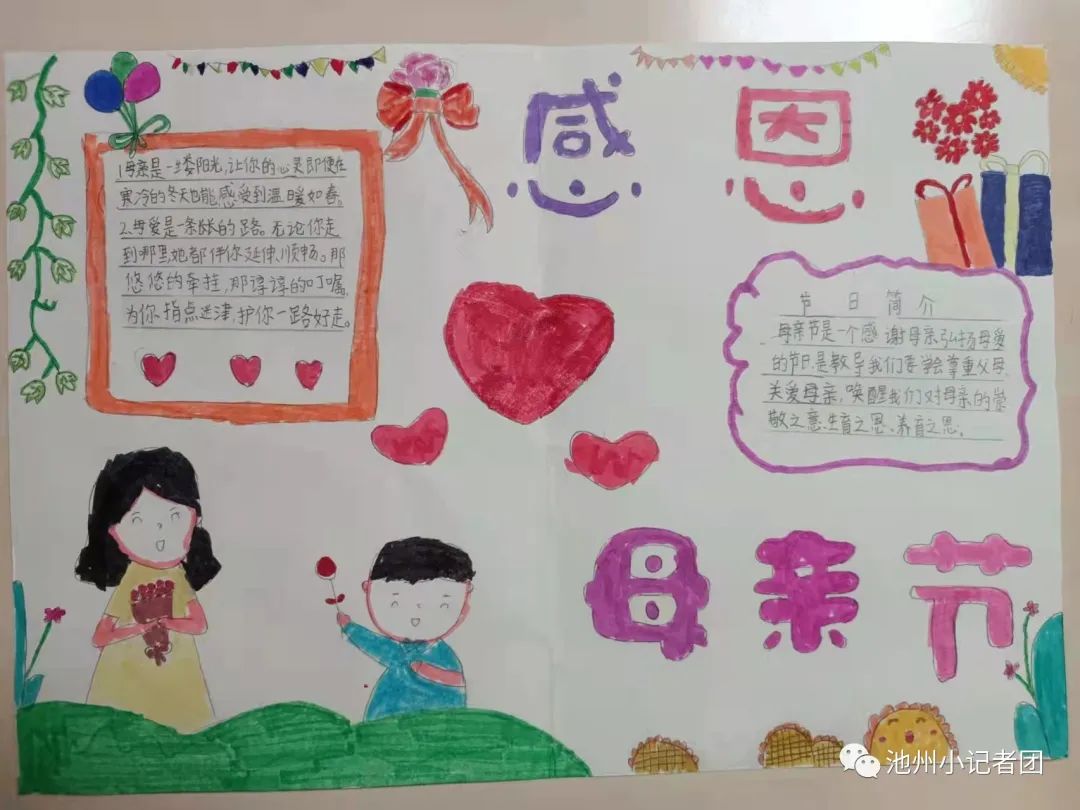 感恩
1.母亲是一缕阳光,让你的心灵即使在
寒冷的冬天也能感受到温暖如春。
2.母爱是一条长长的路。无论你走
到哪里她都伴你延伸、顺畅。那
悠悠的牵挂,那谆谆的叮嘱,
为你指点迷津,护你一路好走。
节日简介
母亲节是一个感谢母亲弘扬母爱
的节日,是教导我们要学会尊重父母,
关爱母亲,唤醒我们对母亲的崇
敬之意,生育之恩、养育之恩。
母亲节
池州小记者团